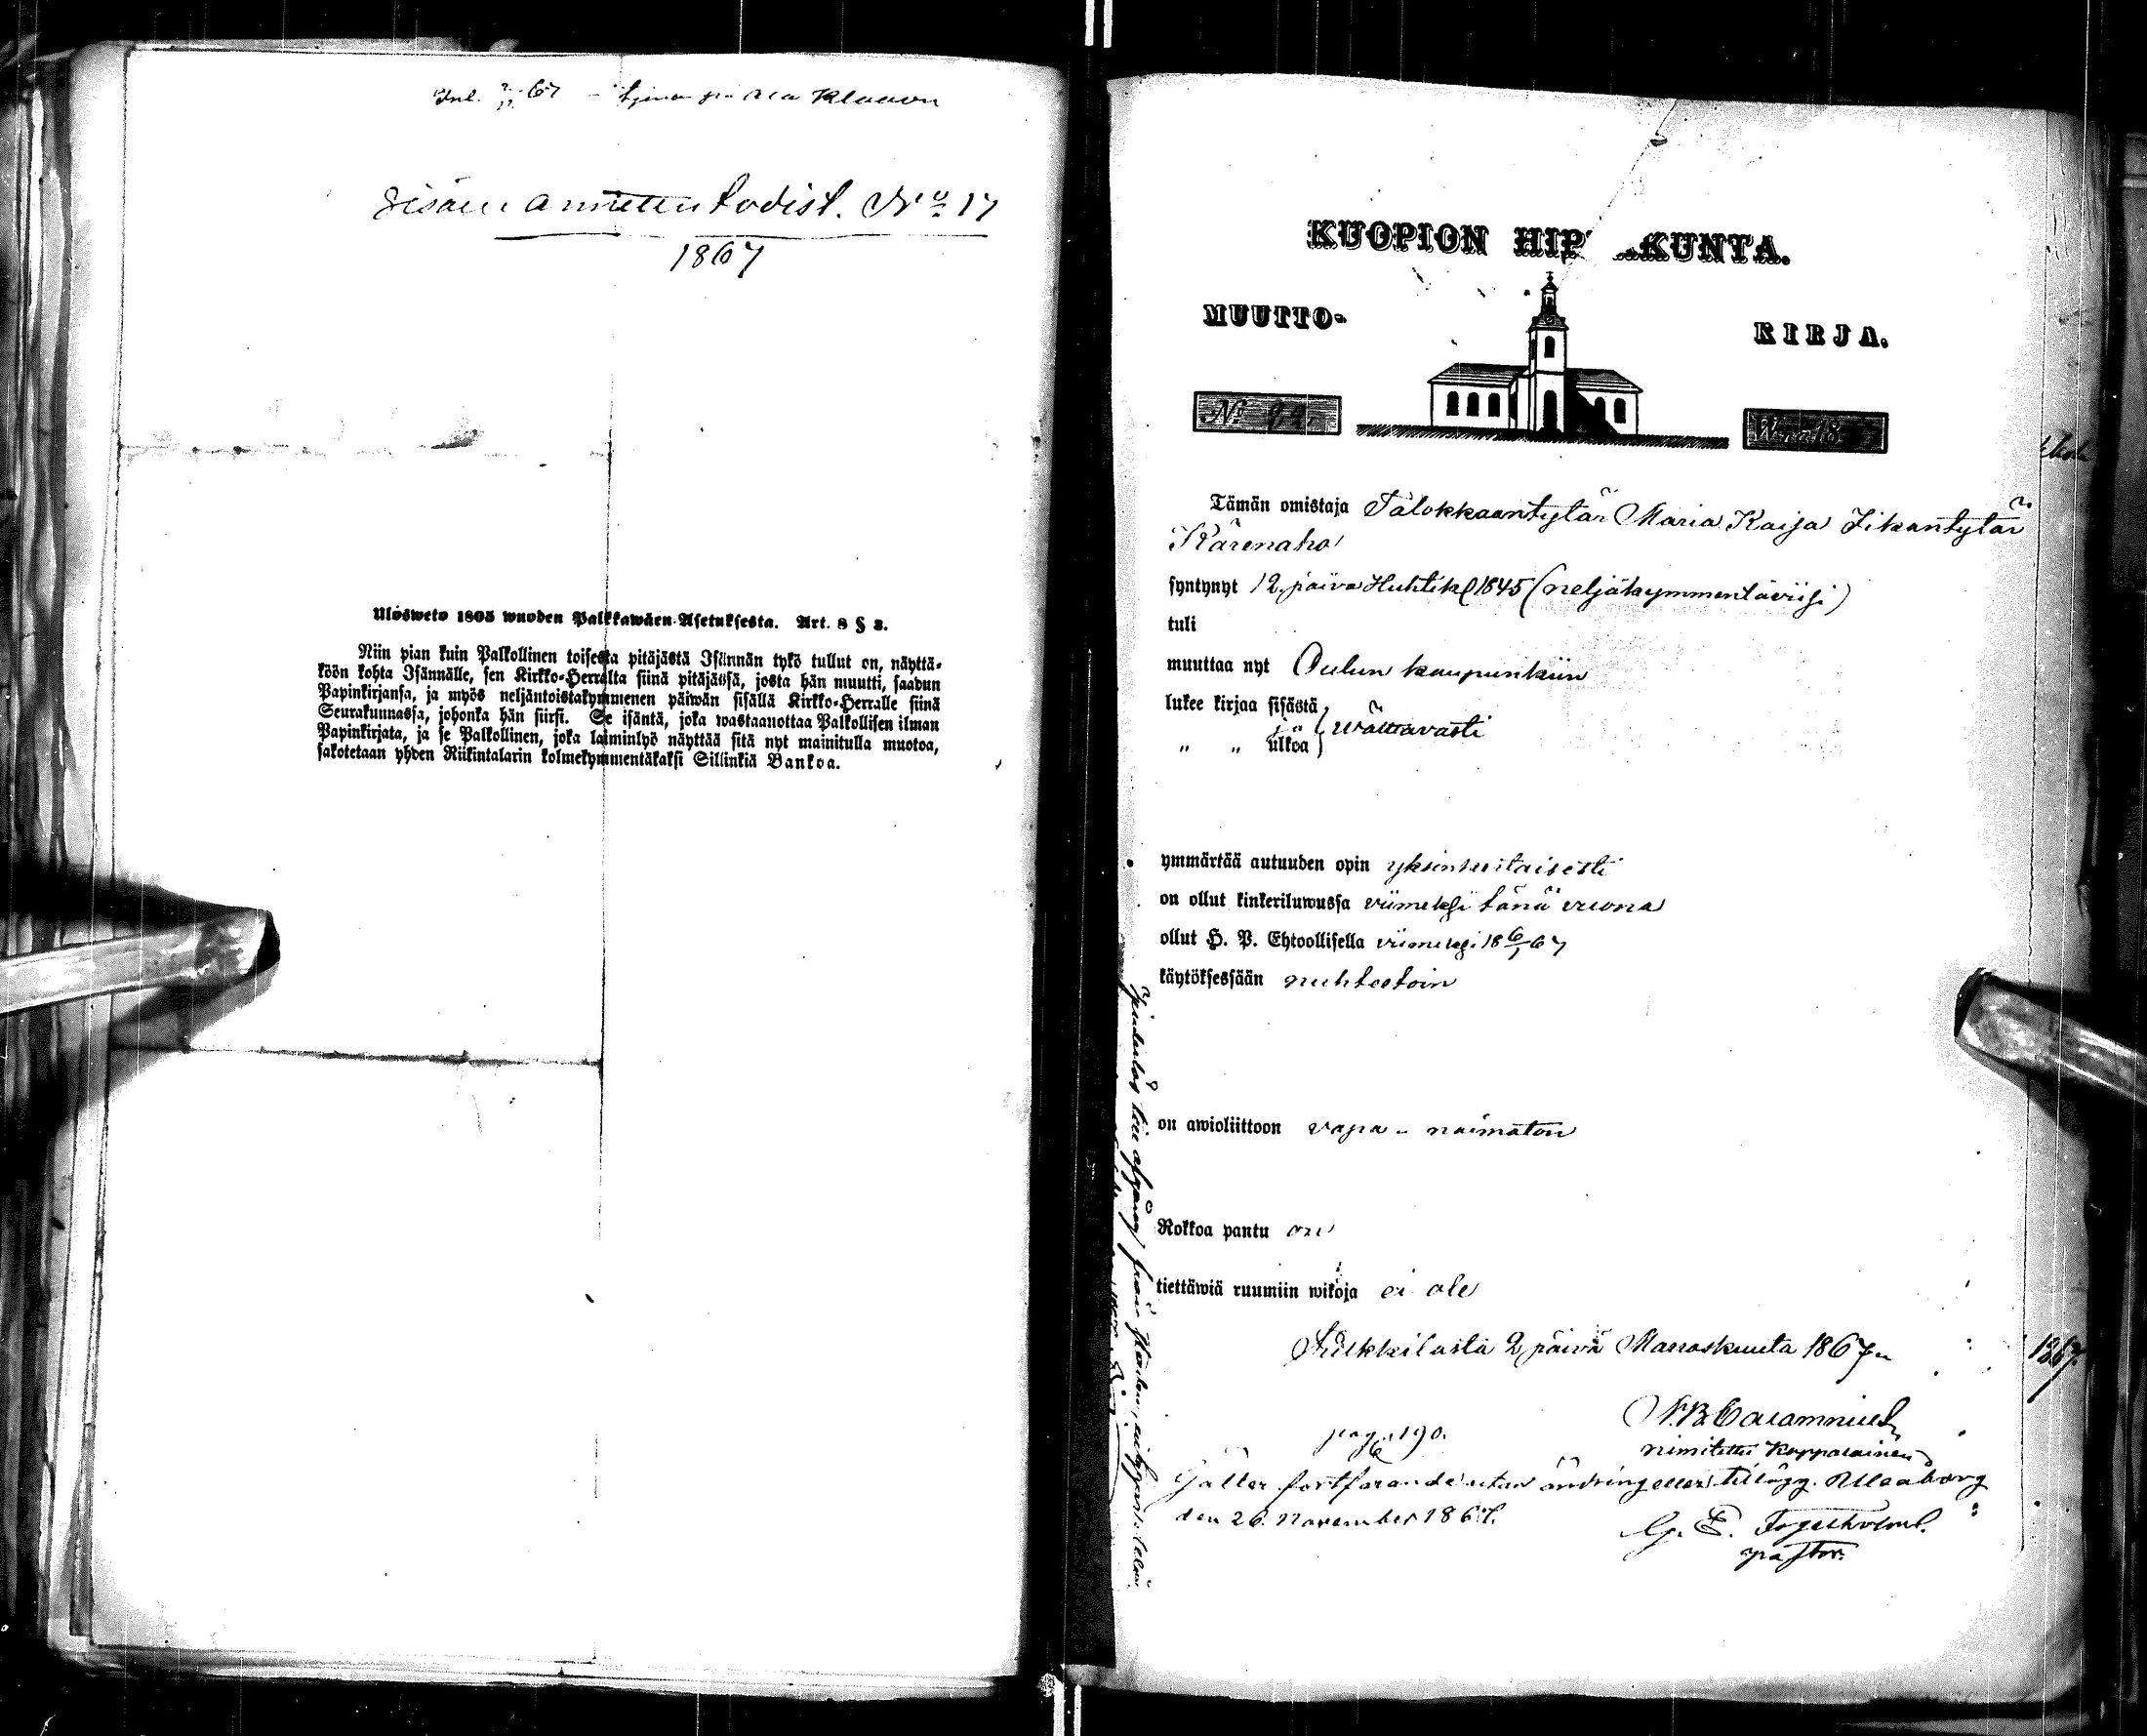 Inl.
Sisään annettu todist. No 17
1867
Ulösweto 1805 wuoden Palkkawäen-Asetuksesta. Art. 8 § 3.
Niin pian kuin Palkollinen toisesta pitäjästä Isännän tykö tullut on, näyttä-
köön kohta Isännälle, sen Kirkko-Herralta siinä pitäjässä, josta hän muutti, saadun
Papinkirjansa, ja myös neljäntoistakymmenen päiwän sisällä Kirkko-Herralle siinä
Seurakunnassa, johonka hän siirsi. Se isäntä, joka wastaanottaa Palkollisen ilman
Papinkirjata, ja se Palkollinen, joka laiminlyö näyttää sitä nyt mainitulla muotoa,
sakotetaan yhden Riikintalarin kolmekymmentäkaksi Sillinkiä Bankoa.
KUOPION HIP KUNTA.
MUUTTO- KIRJA.
No
Tämän omistaja Talokkaantytär Maria Kaisa Iikantytär
Kärenaho
syntynyt 12 päivä Huhtik 1845 (neljäkymmentäviisi)
tuli
muuttaa nyt Oulun kaupunkiin
lukee kirjaa sisästä
ja wälttävästi
" " ulkoa
ymmärtää autuuden opin yksinkertaisesti
on ollut kinkeriluwussa viimeksi tänä vuona
ollut H. P. Ehtoollisella viimeksi 18 6/ 67
käytöksessään nuhteetoin
on awioliittoon vapa - naimaton
Rokkoa pantu on
tiettäwiä ruumiin wikoja ei ole
2 päivä Marraskuuta 1867
nimitetty Kappalainen
pag. 190.
Gäller fortfarande utan ändring eller tillägg. Uleåborg
den 26 November 1867.
pastor.
1867.